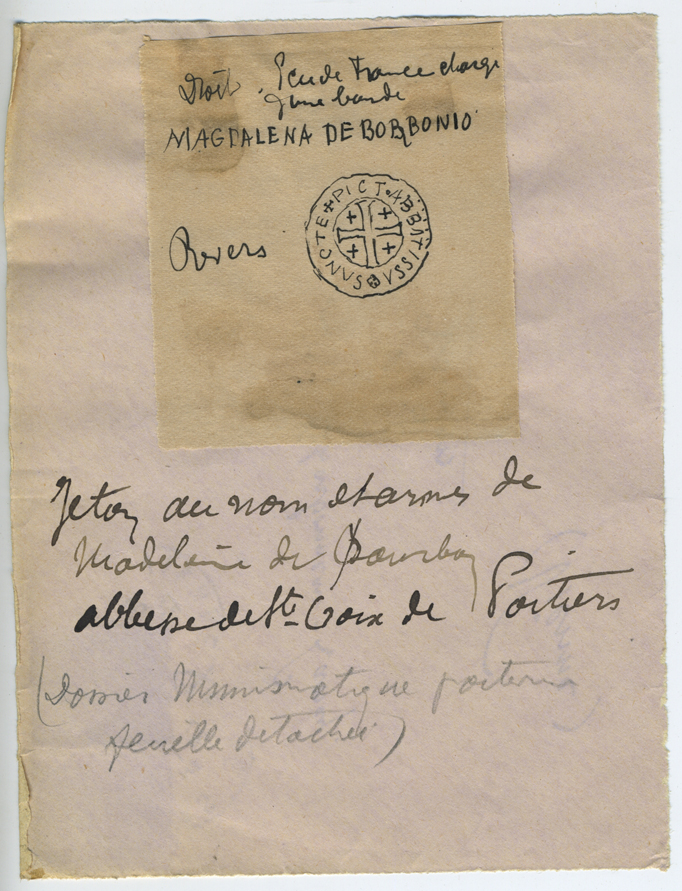 Droit. Ecu de France chargé
d'une bande
MAGDALENA DE BORBONIO
Revers
✠ PICT. ABBATISSA ✠ SANCTE
Jeton au nom et armes de
Madeleine de Bourbon
abbesse de Ste Croix de Poitiers
(Dossier Numismatique poitevine
feuille détachée)